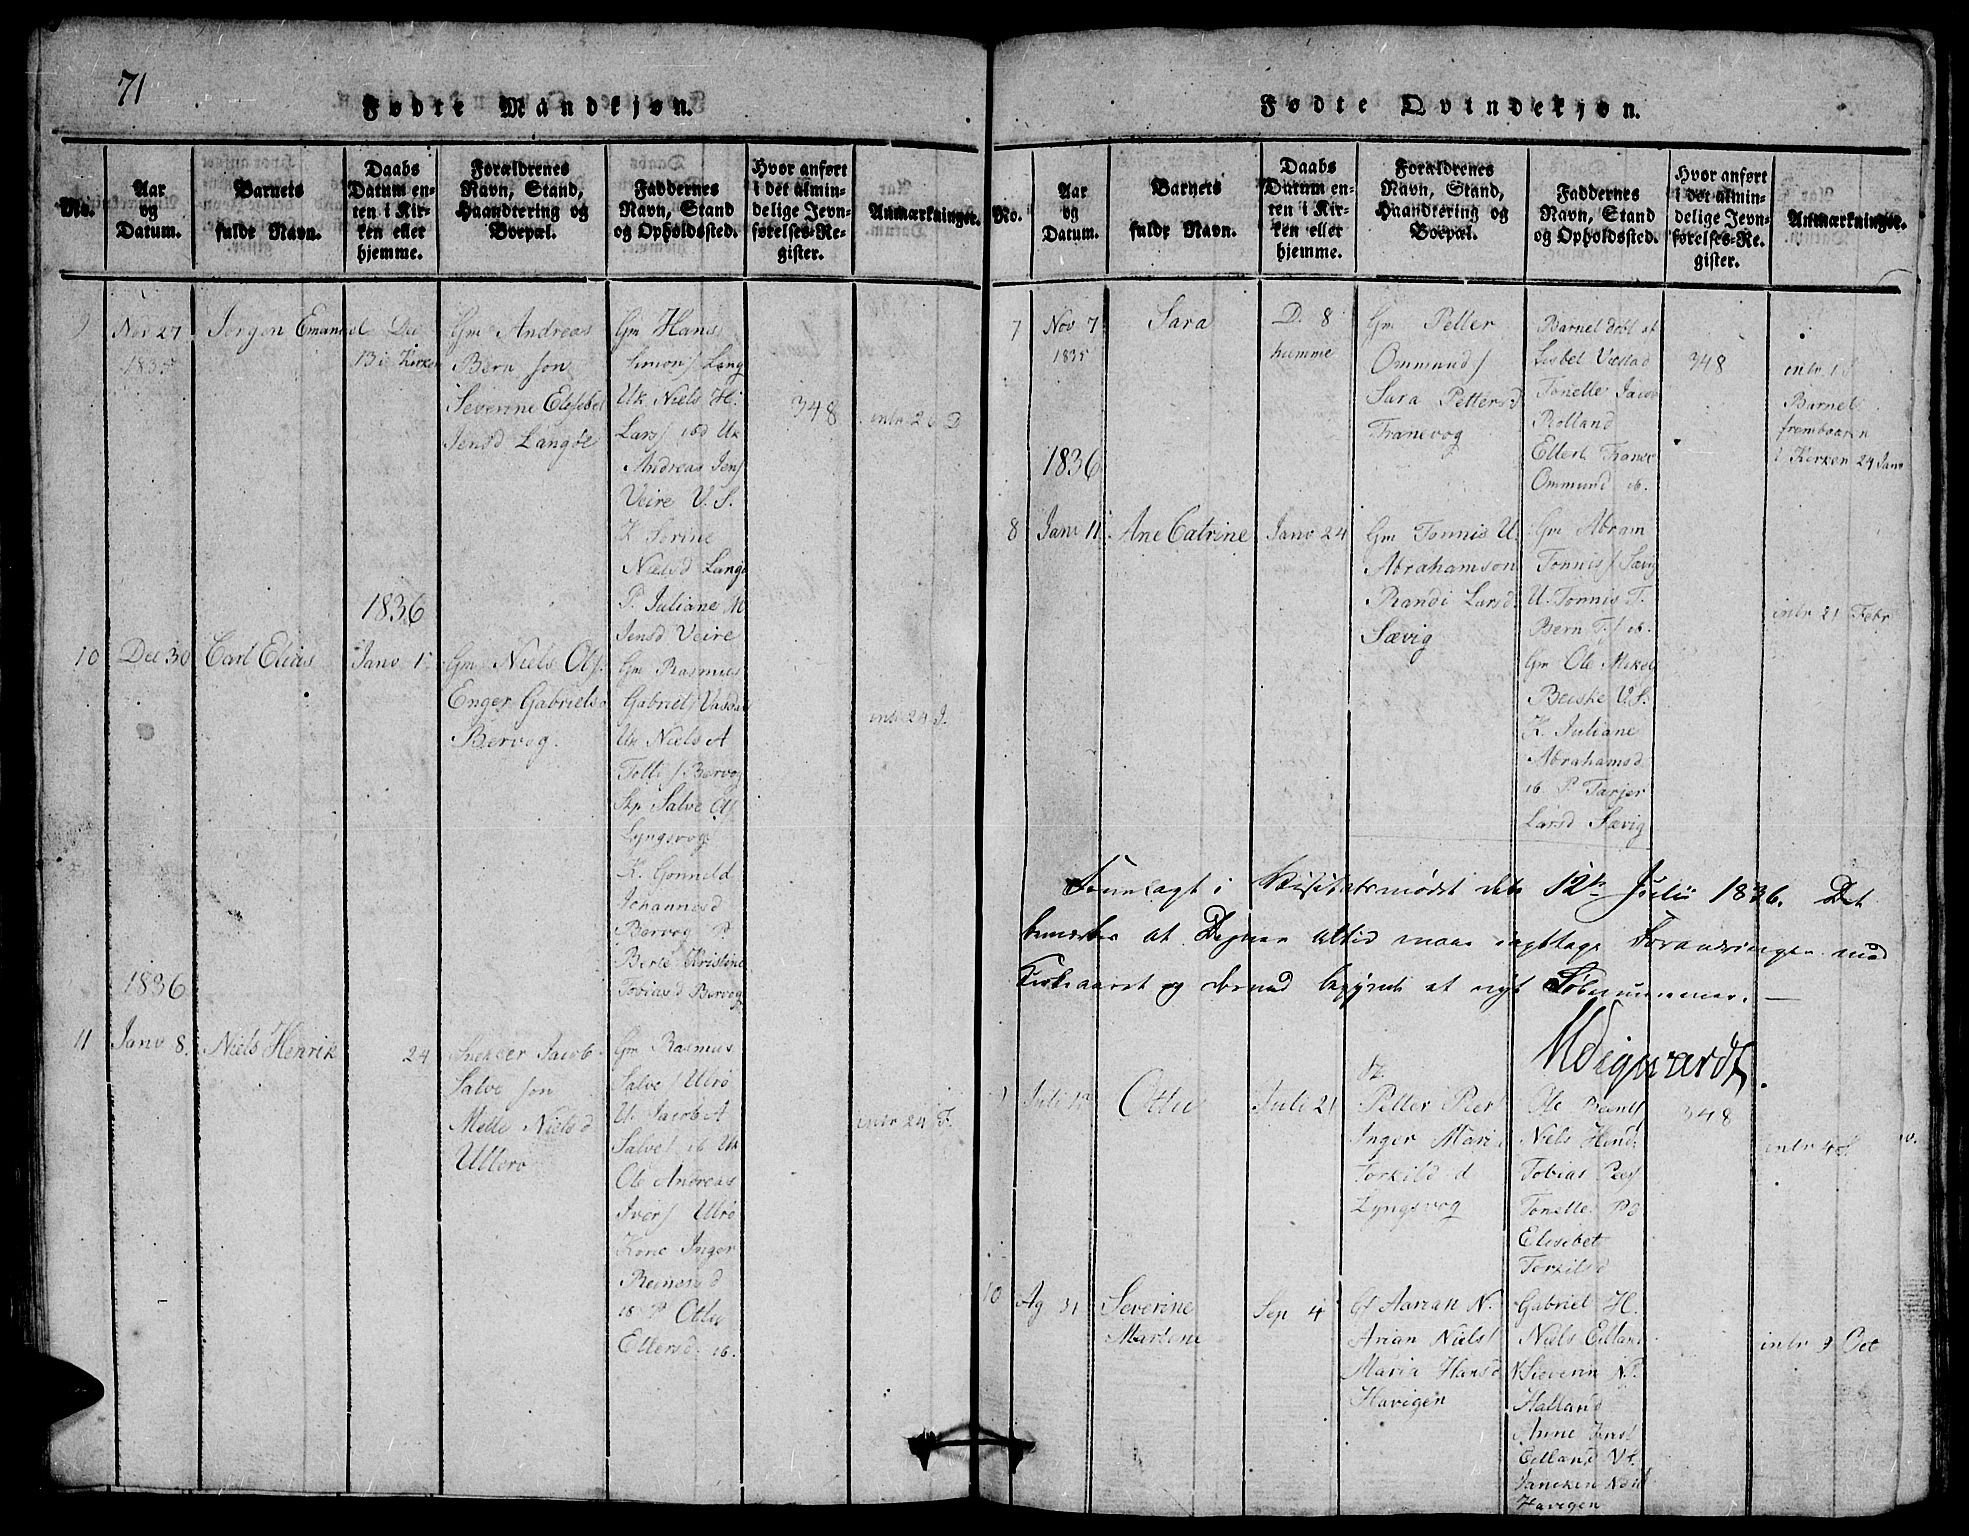 71
Fødte Mandkjøn.
No.
Aar
og
Datum.
Barnets
fulde Navn.
Daabs
Datum en-
ten i Kir-
ken eller
hjemme.
Forældrenes
Navn, Stand,
Haandtering og
Boepæl.
Faddernes
Navn, Stand
og Opholdssted.
Hvor anført
i det almin-
delige Jevn-
førelses-Re-
gister.
Anmærkninger.
9
Nov 27
1835
Jørgen Emanuel
Dec
13 i Kirken
Gm Andreas
Bern son
Severine Elisebet
Jensd Langøe
Gm Hans
Simons Lang
Uk Niels H.
Lars ibd Uk
Andreas Jens
Veire V. S.
K Serine
Nielsd Lang
P. Juliane M
Jensd Veire
348
intr 26 D
10
Dec 30
Carl Elias
1836
Janv 1
Gm Niels Ols
Enger Gabrielsd
Bervog.
Gm Rasmus
Gabriels
Uk Niels A
Bervog
Skp Salve Ols
Lyngsvog
K. Gonneld
Johannesd
Bervog P.
Berte Kristine
Tobiasd Bervog
intr 24 J.
1836
11
Janv 8.
Niels Henrik
24
Jacob
Salve son
Mette Nielsd
Ullerø
Gm Rasmus
Salves Ulrø
U. Jacob A
Salves ib Uk
Ole Andreas
Ivers Ulrø
Kone Inger
Berntsd
ib P Otlie
Ellersd ib.
intr 24 F.
Fødte Qvindekjøn.
No.
Aar
og
Datum.
Barnets
fulde Navn.
Daabs
Datum en-
ten i Kir-
ken eller
hjemme.
Forældrenes
Navn, Stand,
Haandtering og
Boepæl.
Faddernes
Navn, Stand
og Opholdssted.
Hvor anført
i det almin-
delige Jevn-
førelses-Re-
gister.
Anmærkninger.
7
Nov 7
1835
Sara
D. 8
hiemme
Gm Petter
Ommunds
Sara Pettersd
Tranevog
Barnet døbt af
Lisbet
Tonelle Jacob
Rolland
Ellert Trane
Ommund ib.
348
intr
Barnet
frembaaren
i Kirken 24 Janv
1836
8
Janv 11
Ane Catrine
Janv 24
Gm Tonnis U.
Abrahamson
Randi Larsd
Sævig
Gm Abram
Tonnis Sævig
U. Tonnis T.
Bern T. ib.
Gm Ole Mikel
Beiske V. S.
K. Juliane
Abrahamsd
ib P. Tarjer
Larsd Sævig
intr 21 Febr
Fremlagt i Visitatsmødet den 12te Julii 1836. Det
bemærkes at Degnen altid maae iagttage Forandringen med
Kirkeaaret og dermed begynde et nyt Løbenummer. —
9
Juli
Otlie
Juli 21
Petter Peers
Inger Marie
Torkild d
Lyngsvog
Ole Bernts
Niels Hend
Tobias Peers
Tonelle Pd
Elisebet
Torkilsd
348
intr 4 S
10
Ag 31
Severine
Martene
Sep 4
Aarian N.
Arian Niels
Maria Hansd
Havigen
Gabriel H.
Niels Eilland
Severin N P.
Halland
Anne
Eilland
Havigen
intr 9 Oct